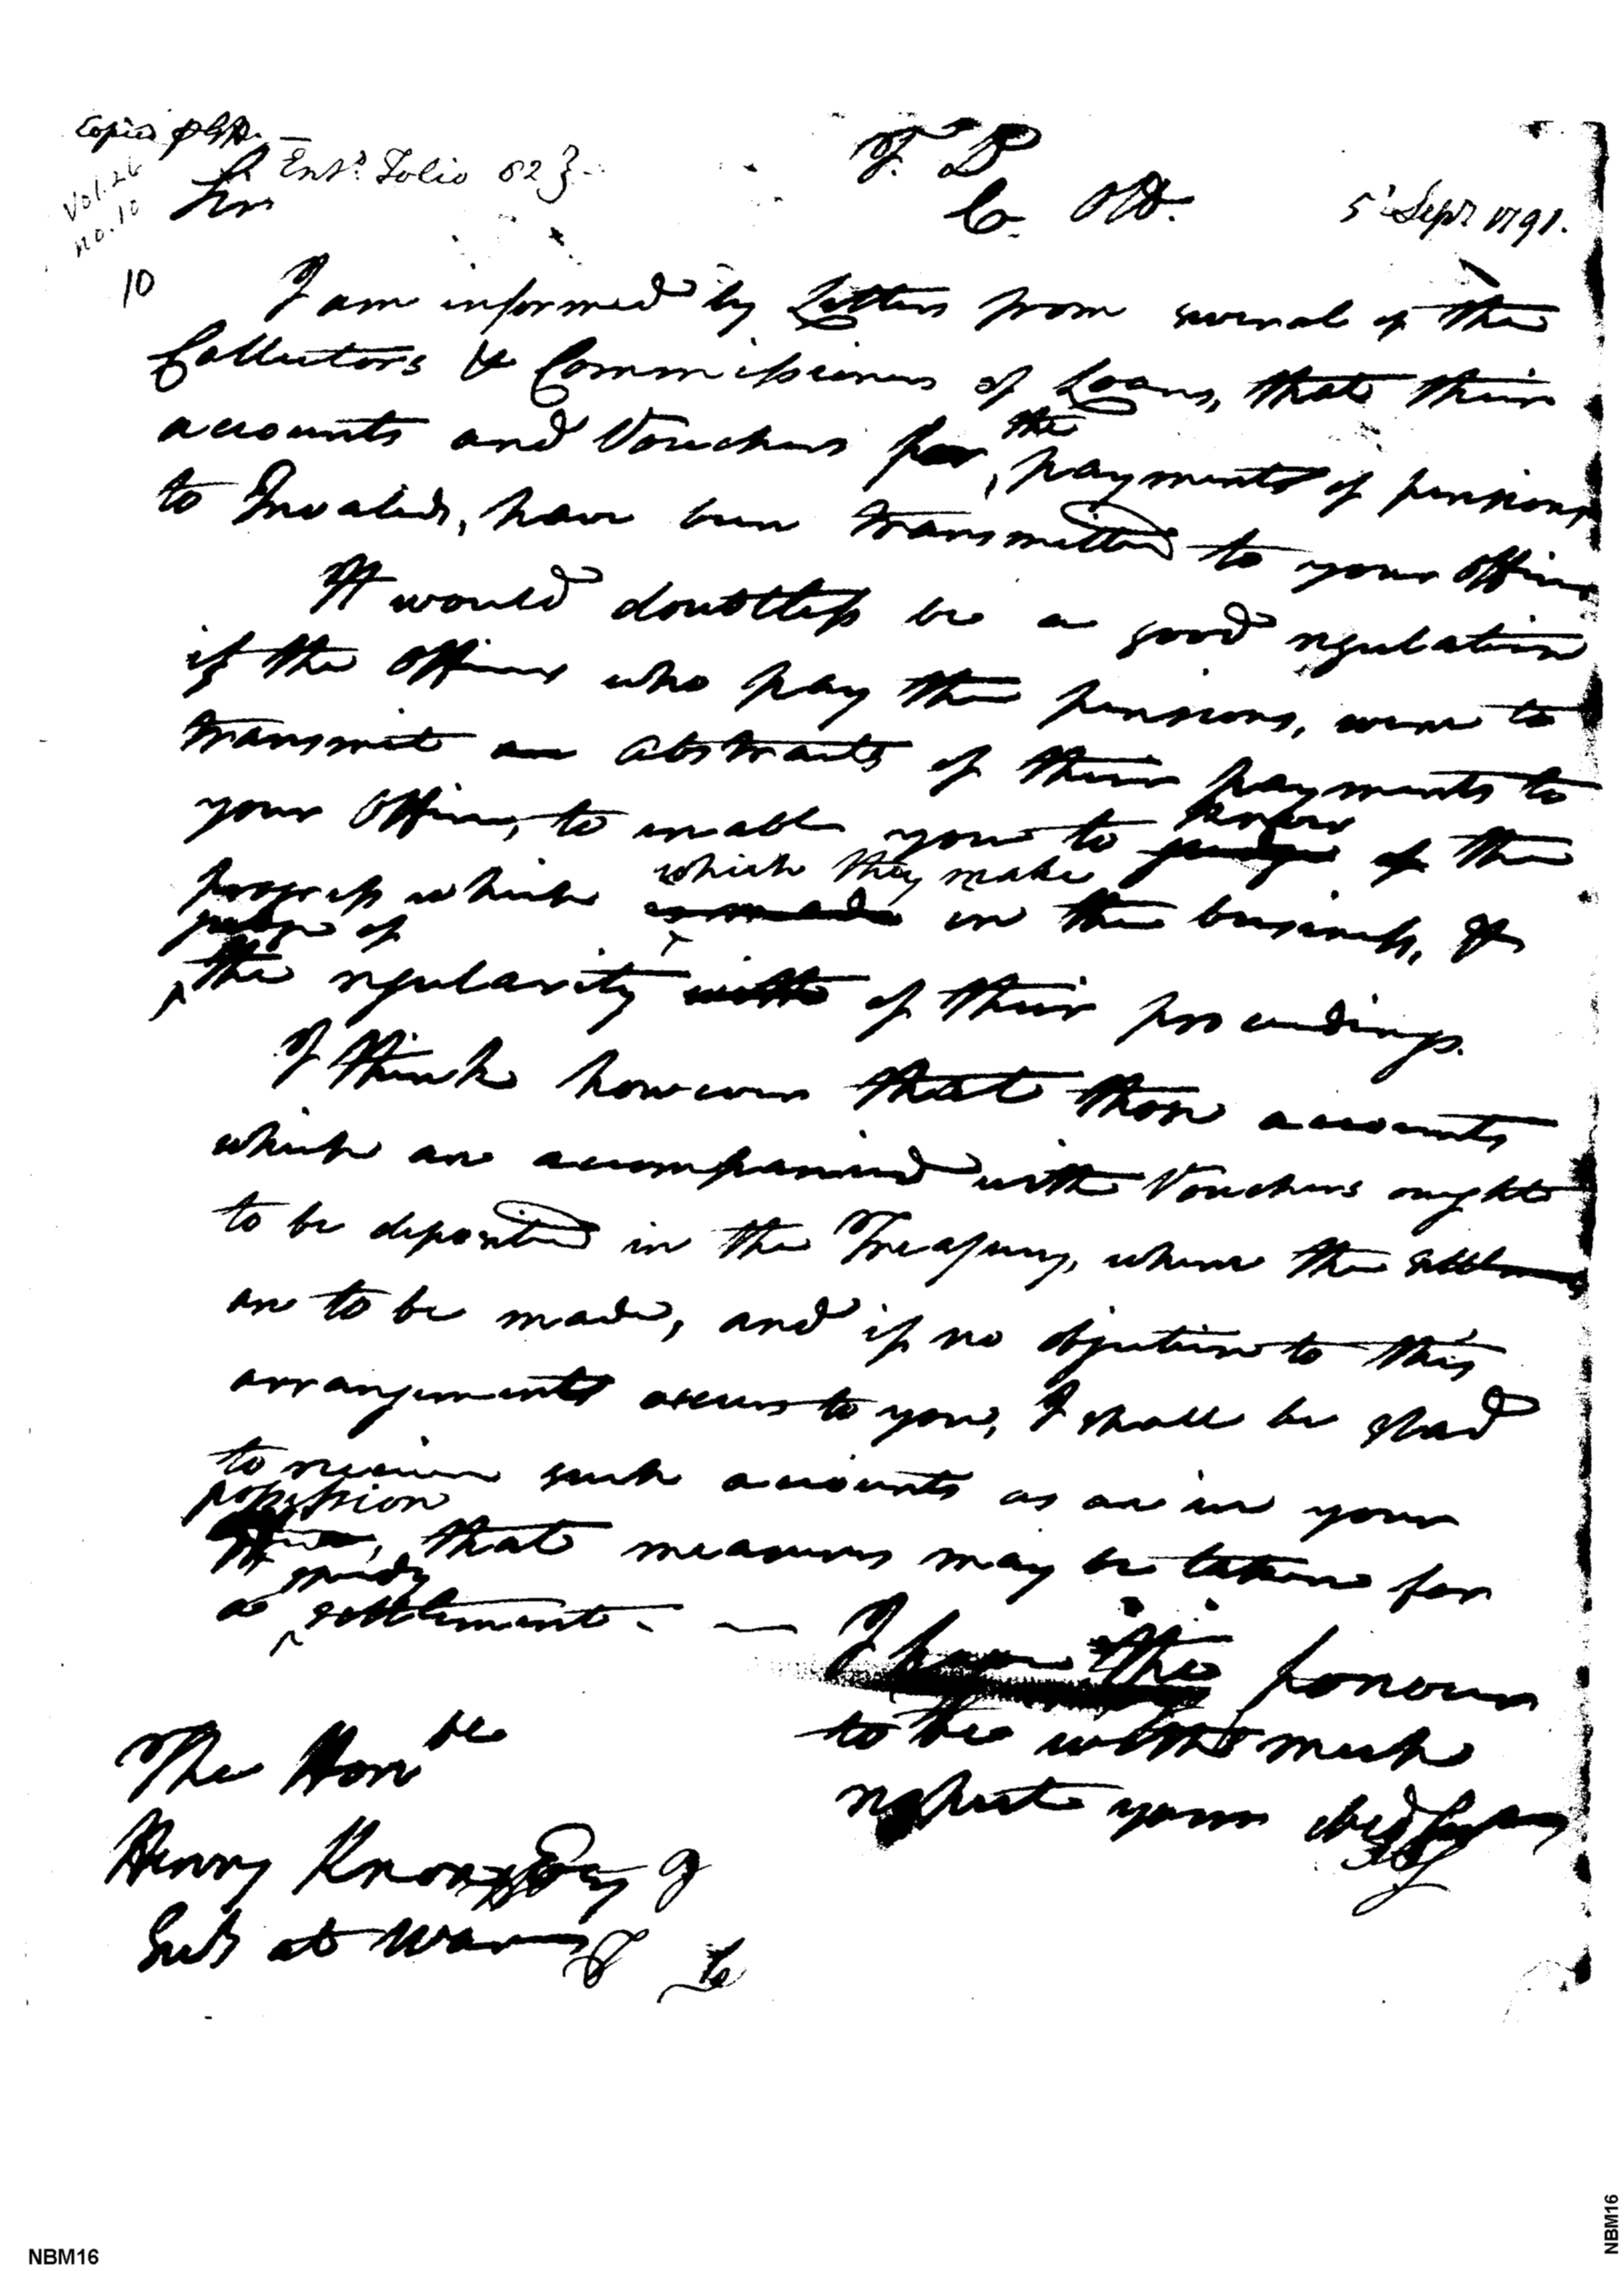 Copied
Entd. Folio 62
Vol. 26
no. 10
Sir
T. D
C. Off. 5' Sepr 1791.
10
I am informed by Letters from several of the
Collectors & Commissioners of Loans, that their
the
accounts and Vouchers for payments of pensions
to Invalids, have been transmitted to your Office
It would doubtless be a good regulation
if the Officers who pay the pensions, were to
transmit an abstracts of their payments to
your Office, to enable you to judge of the
know
which they make
progress which is made in the business, &
judge of
the regularity with of their proceedings.
I think however that those accounts
which are accompanied with Vouchers ought
to be deposited in the Treasury, where the settlements
are to be made, and if no objection to this
arrangement occurs to you, I shall be glad
to receive such accounts as are in your
possession
Office, that measures may be taken for
speedy
a settlement.
I have the honour
to be with much
respect your obed
The Honble
Henry Knox Esq
Secy at War
NBM16
NBM16